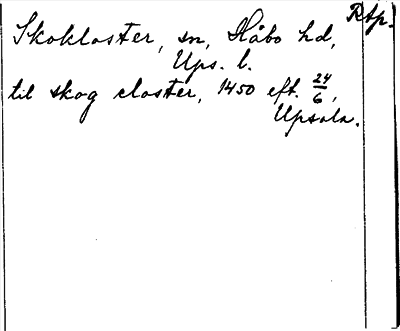 Rtp.
Skokloster, sn, Håbo hd,
Ups. l.
til skog closter, 1450 eft. 24/6,
Upsala.